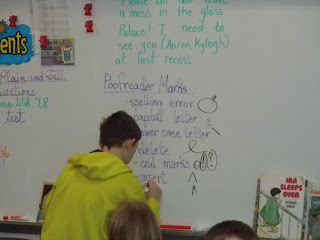 Please do not leave
a mess in the glass
Palace! I need to
see you (Aaron, Kyleigh)
at last recess
ents
Plain and Tall
Proofreader Marks
-spelling error
-capital letter
-lower case letter
-delete
-end marks . ! ?
-insert
test
IRA
SLEEPS
OVER